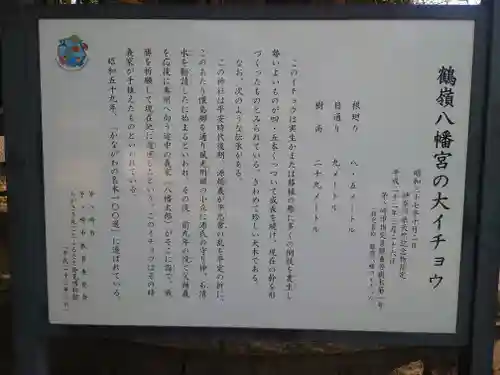 鶴嶺八幡宮の大イチョウ
昭和三十七年十月二日
神奈川県天然記念物指定
平成二十二年三月二十六日
茅ヶ崎市指定
根廻り 八・五メートル
目通り 九メートル
樹高 二十九メートル
このイチョウは実生かまたは移植の際に多くの側枝を叢生し
勢いよいものが四・五本くっついて成長を続け、現在の幹を形
づくったものとみられている。きわめて珍しい大木である。
なお、次のような伝承がある。
この神社は平安時代後期、源頼義が平忠常の乱を平定の折に、
このあたり懐島郷を通り風光明媚の小丘に源氏の守り神、石清
水を勧請したに始まるといわれ、その後、前九年の役で父頼義
を応援に奥州へ向う途中の義家(八幡太郎)がそこに詣で、戦
勝を祈願して現在地に
このイチョウはその時
義家が手植えたものといわれている。
昭和五十九年、「かながわの名木一〇〇選」に選ばれている。
茅ヶ崎市
茅ヶ崎市教育委員会